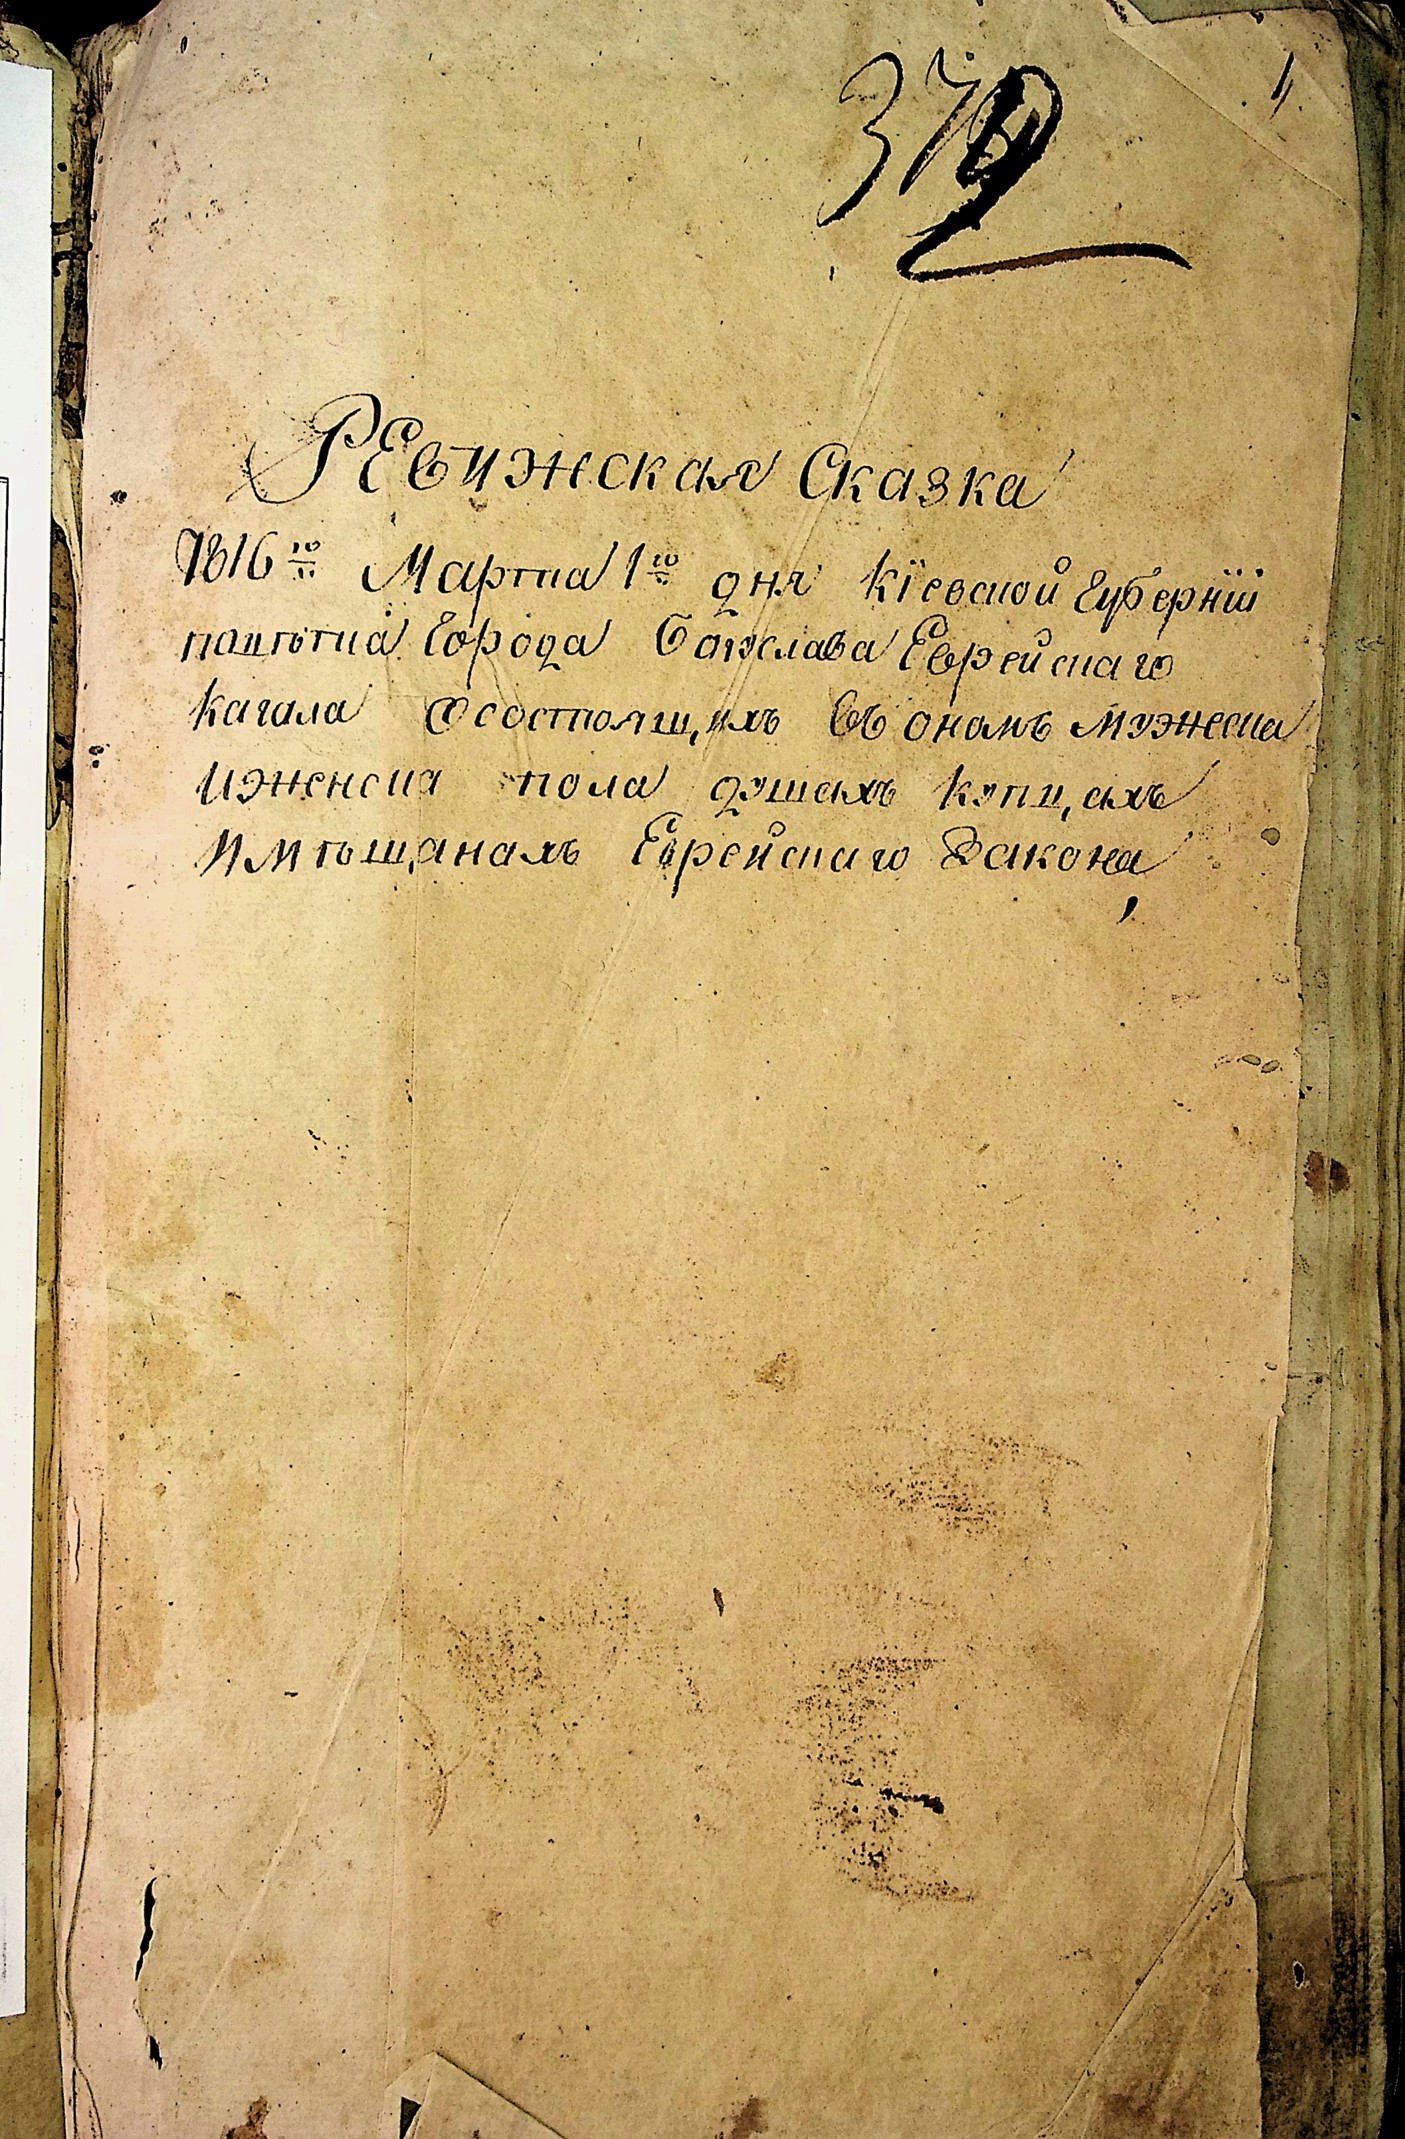 1
372
Ревижская Сказка
1816го Марта 1го дня Кїевской Губернїи
повѣта Города Богуслава Еврейскаго
Кагала Осостоящихъ въ ономъ мужеска
иженска пола душахъ купцахъ
имѣщанахъ Еврейскаго Закона,